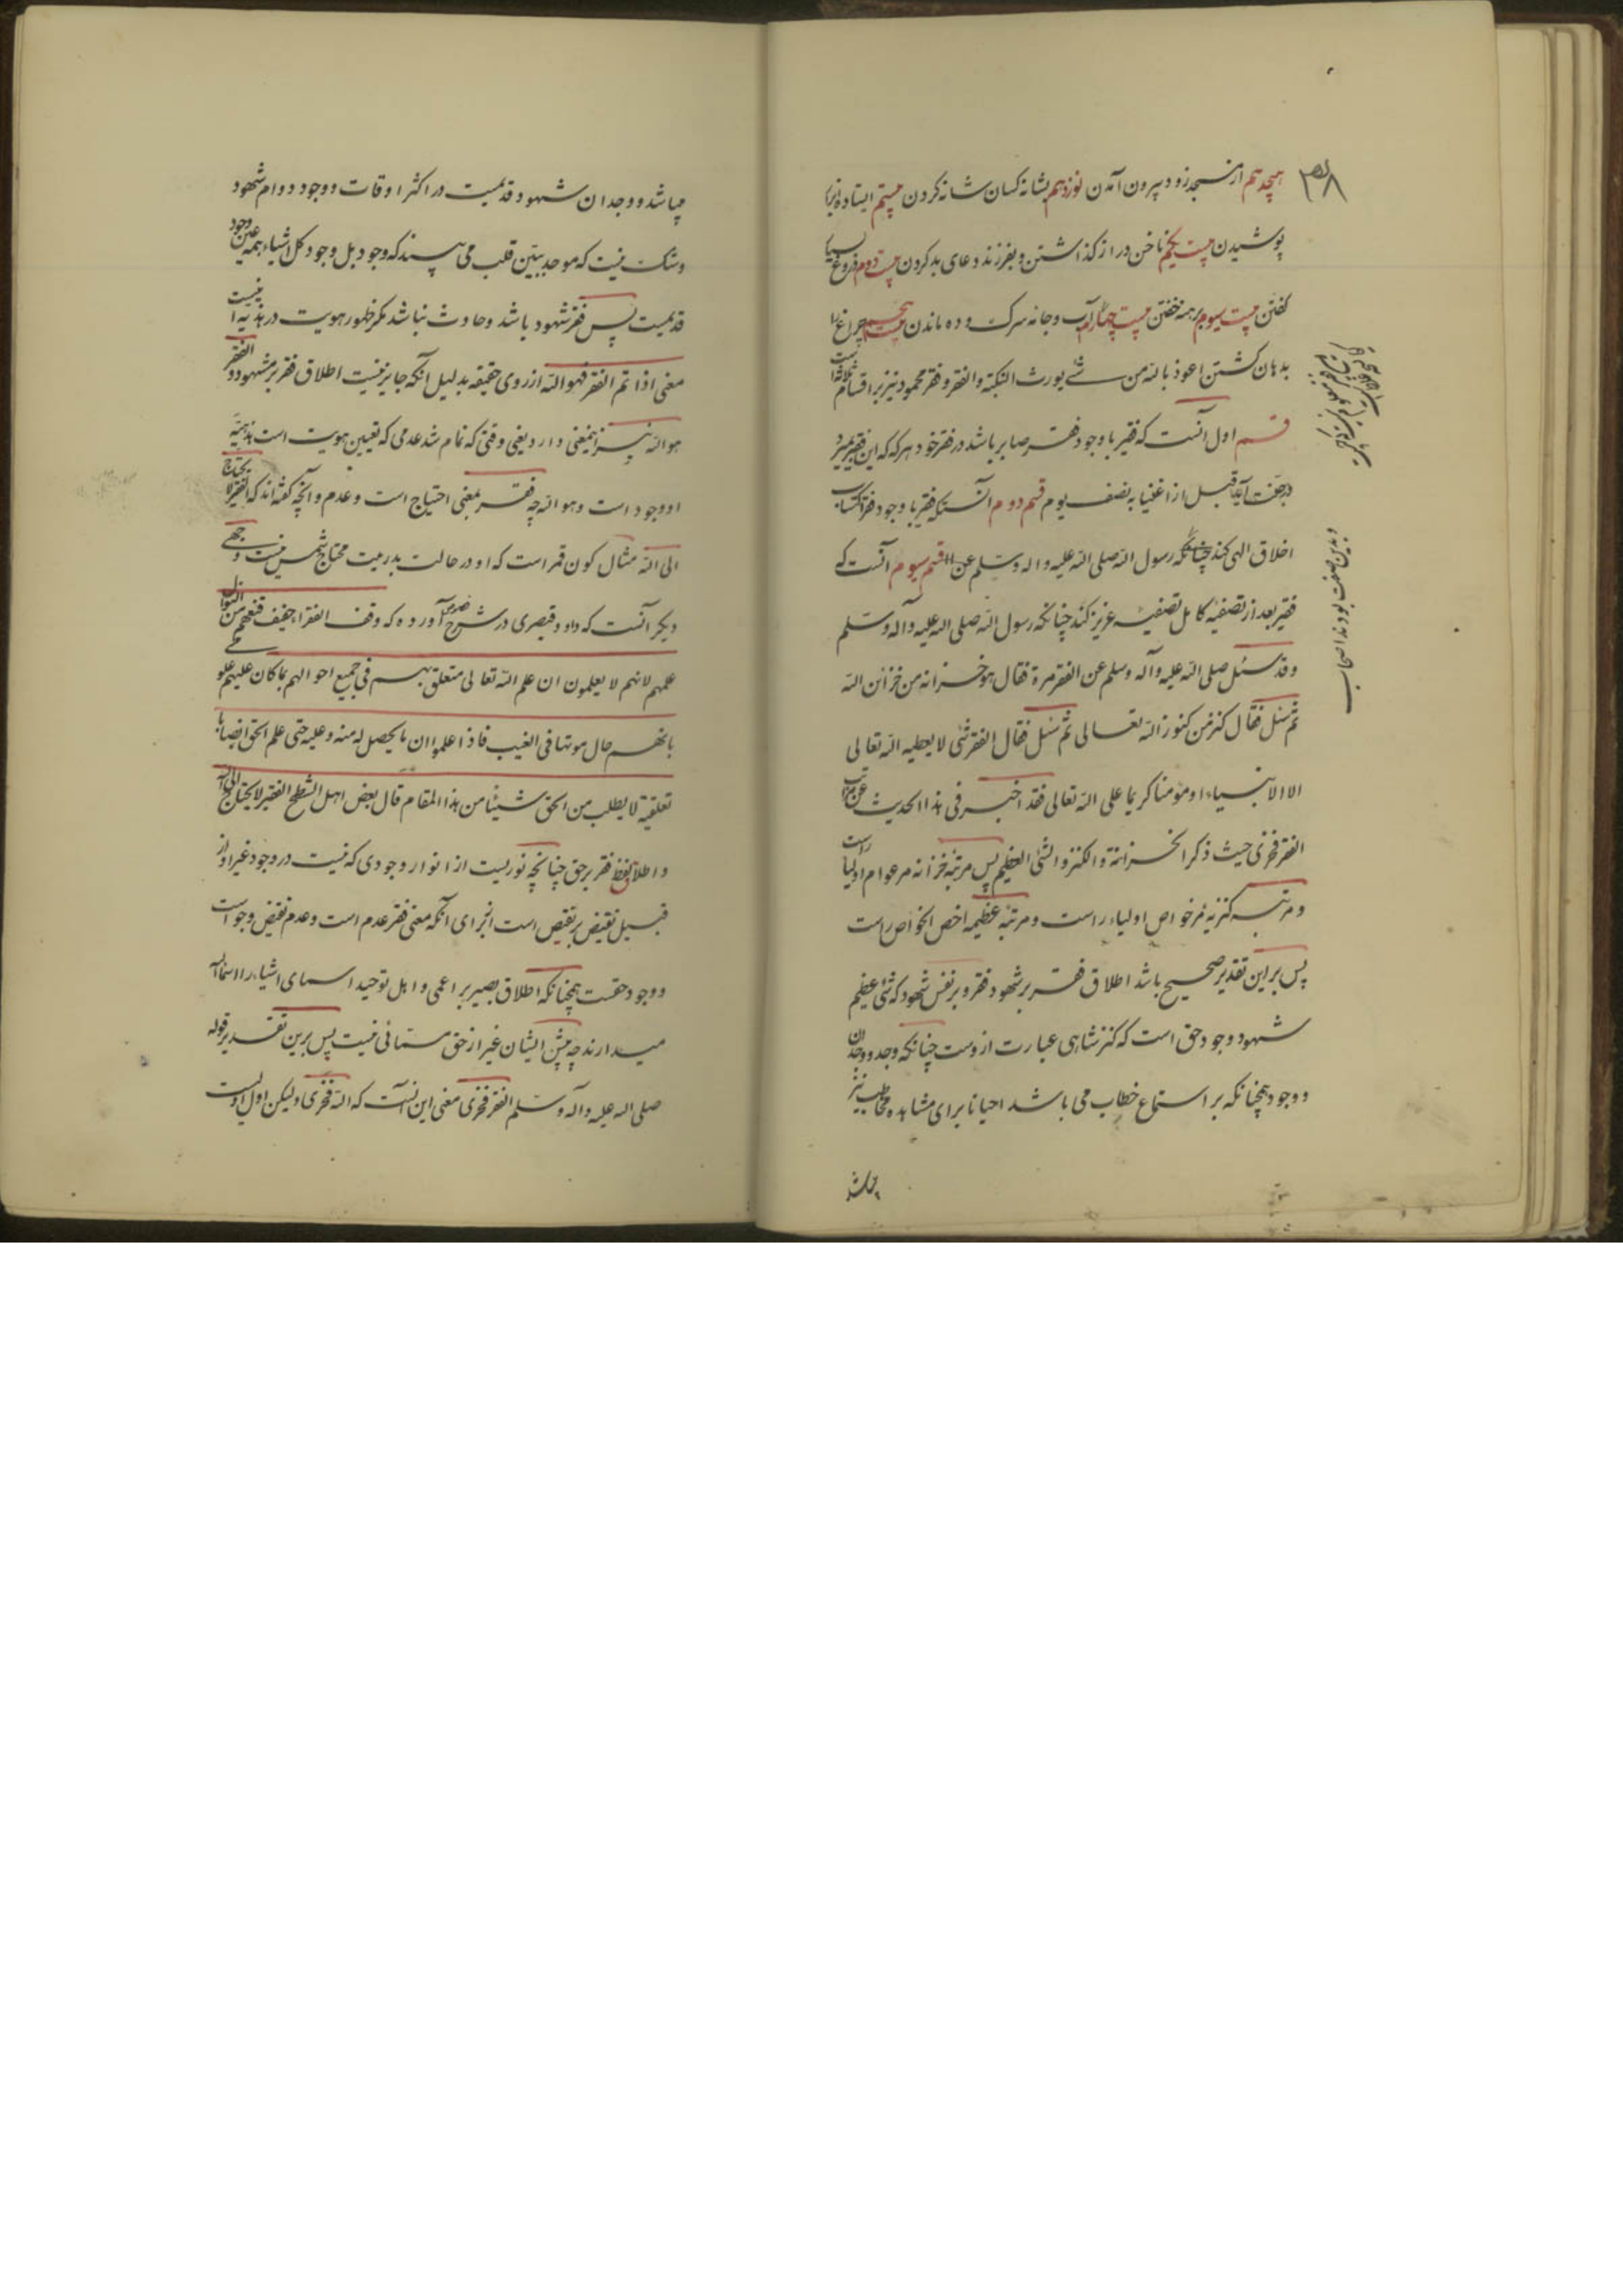 ۳۵۸
هیجدهم از مسجد زود بیرون آمدن نوزدهم بشانه کسان شانه کردن بیستم ایستاده ازار
پوشیدن بیست یکم ناخن دراز گذاشتن و بفرزند دعای بد کردن بیست دوم دروغ بسیار
گفتن بیست سیوم برهنه خفتن بیست چهارم آب و جانه سرگشوده ماندن بیست پنجم چراغ را
بدهان کشتن اعوذ بالله من شی یورث النکبة والفقر و فقر محمود نیز بر اقسام ثلاثه است
قسم اول آنست که فقیر با وجود فقر صابر باشد در فقر خود هرکه که این فقیر بمیرد
در جنت آید قبل از اغنیا به نصف یوم قسم دوم آنستکه فقیر با وجود فقر اکتساب
اخلاق الهی کند چنانکه رسول الله صلی الله علیه و اله وسلم عن قسم سیوم آنست که
فقیر بعد از تصفیه کامل تصفیه عزیز کند چنانکه رسول الله صلی الله علیه و آله وسلم
وقد سئل صلی الله علیه وآله وسلم عن الفقر مرة فقال هو خزانه من خزائن الله
ثم سئل فقال کنز من کنوز الله تعالی ثم سئل فقال الفقر شئ لا یعطیه الله تعالی
الا الانبیاء او مؤمنا کریما علی الله تعالی فقد اخبر فی هذا الحدیث عن مراتب
الفقر فخری حیث ذکر الخزانة و الکنز و الشئ العظیم پس مرتبه خزانه مر عوام اولیا راست
و مرتبه کنزیه مر خواص اولیاء راست و مرتبه عظیمه اخص الخواص راست
پس براین تقدیر صحیح باشد اطلاق فقر بر شهود فقر و بر نفس شهود که شئ عظیم
شهود وجود حق است که کنز شاهی عبارت ازوست چنانکه وجد و وجدان
و وجود همچنانکه بر استماع خطاب می باشد احیانا برای مشاهده مخاطب نیز
میباشد
و بدین صفت بودند اصحاب
میباشد و وجدان شهود قدیمیت در اکثر اوقات و وجود دوام شهود
و شک نیست که موحد ببین قلب می بیند که وجود بل وجود کل اشیاء همه عین وجود
قدیمیت پس فقر شهود باشد و حادث نباشد مگر ظهور هویت در هذیه اینست
معنی اذا تم الفقر فهو الله از روی حقیقه بدلیل آنکه جایز نیست اطلاق فقر بر مشهود و الفقر
هو الله نیز اینمعنی دارد یعنی وقتی که تمام شد عدمی که تعیین هویت است بهذیه
او وجود است و هو الله چه فقر بمعنی احتیاج است و عدم و آنچه گفته اند که الفقیر لا یحتاج
الی الله مثال کون قمر است که او در حالت بدریت محتاج شمس نیست و جهی
دیگر آنست که داود قیصری در شرح فصوص آورده که وقف الفقراء فمنهم من السؤال
علمهم لانهم لا یعلمون ان علم الله تعالی متعلق بهم فی جمیع احوالهم بما کان علیهم علم
فاذا علموا ان ما یحصل له منه و علیه حتی علم الحق ایضا
لا یطلب من الحق شیئا من هذا المقام قال بعض اهل الشطح الفقیر لا یحتاج الی الله
و اطلاق لفظ فقر بر حق چنانچه نوریست از انوار وجودی که نیست در وجود غیر او از
قبیل نقیض بر نقیض است از برای آنکه معنی فقر عدم است و عدم نقیض وجود است
و وجود حقست همچنانکه اطلاق بصیر بر اعمی و اهل توحید اسمای اشیاء را اسماء الله
میدارند چه پیش ایشان غیر از حق مسمائی نیست پس برین تقدیر قوله
صلی الله علیه و اله وسلم الفقر فخری معنی این آنست که الله فخری و لیکن اول اولیست